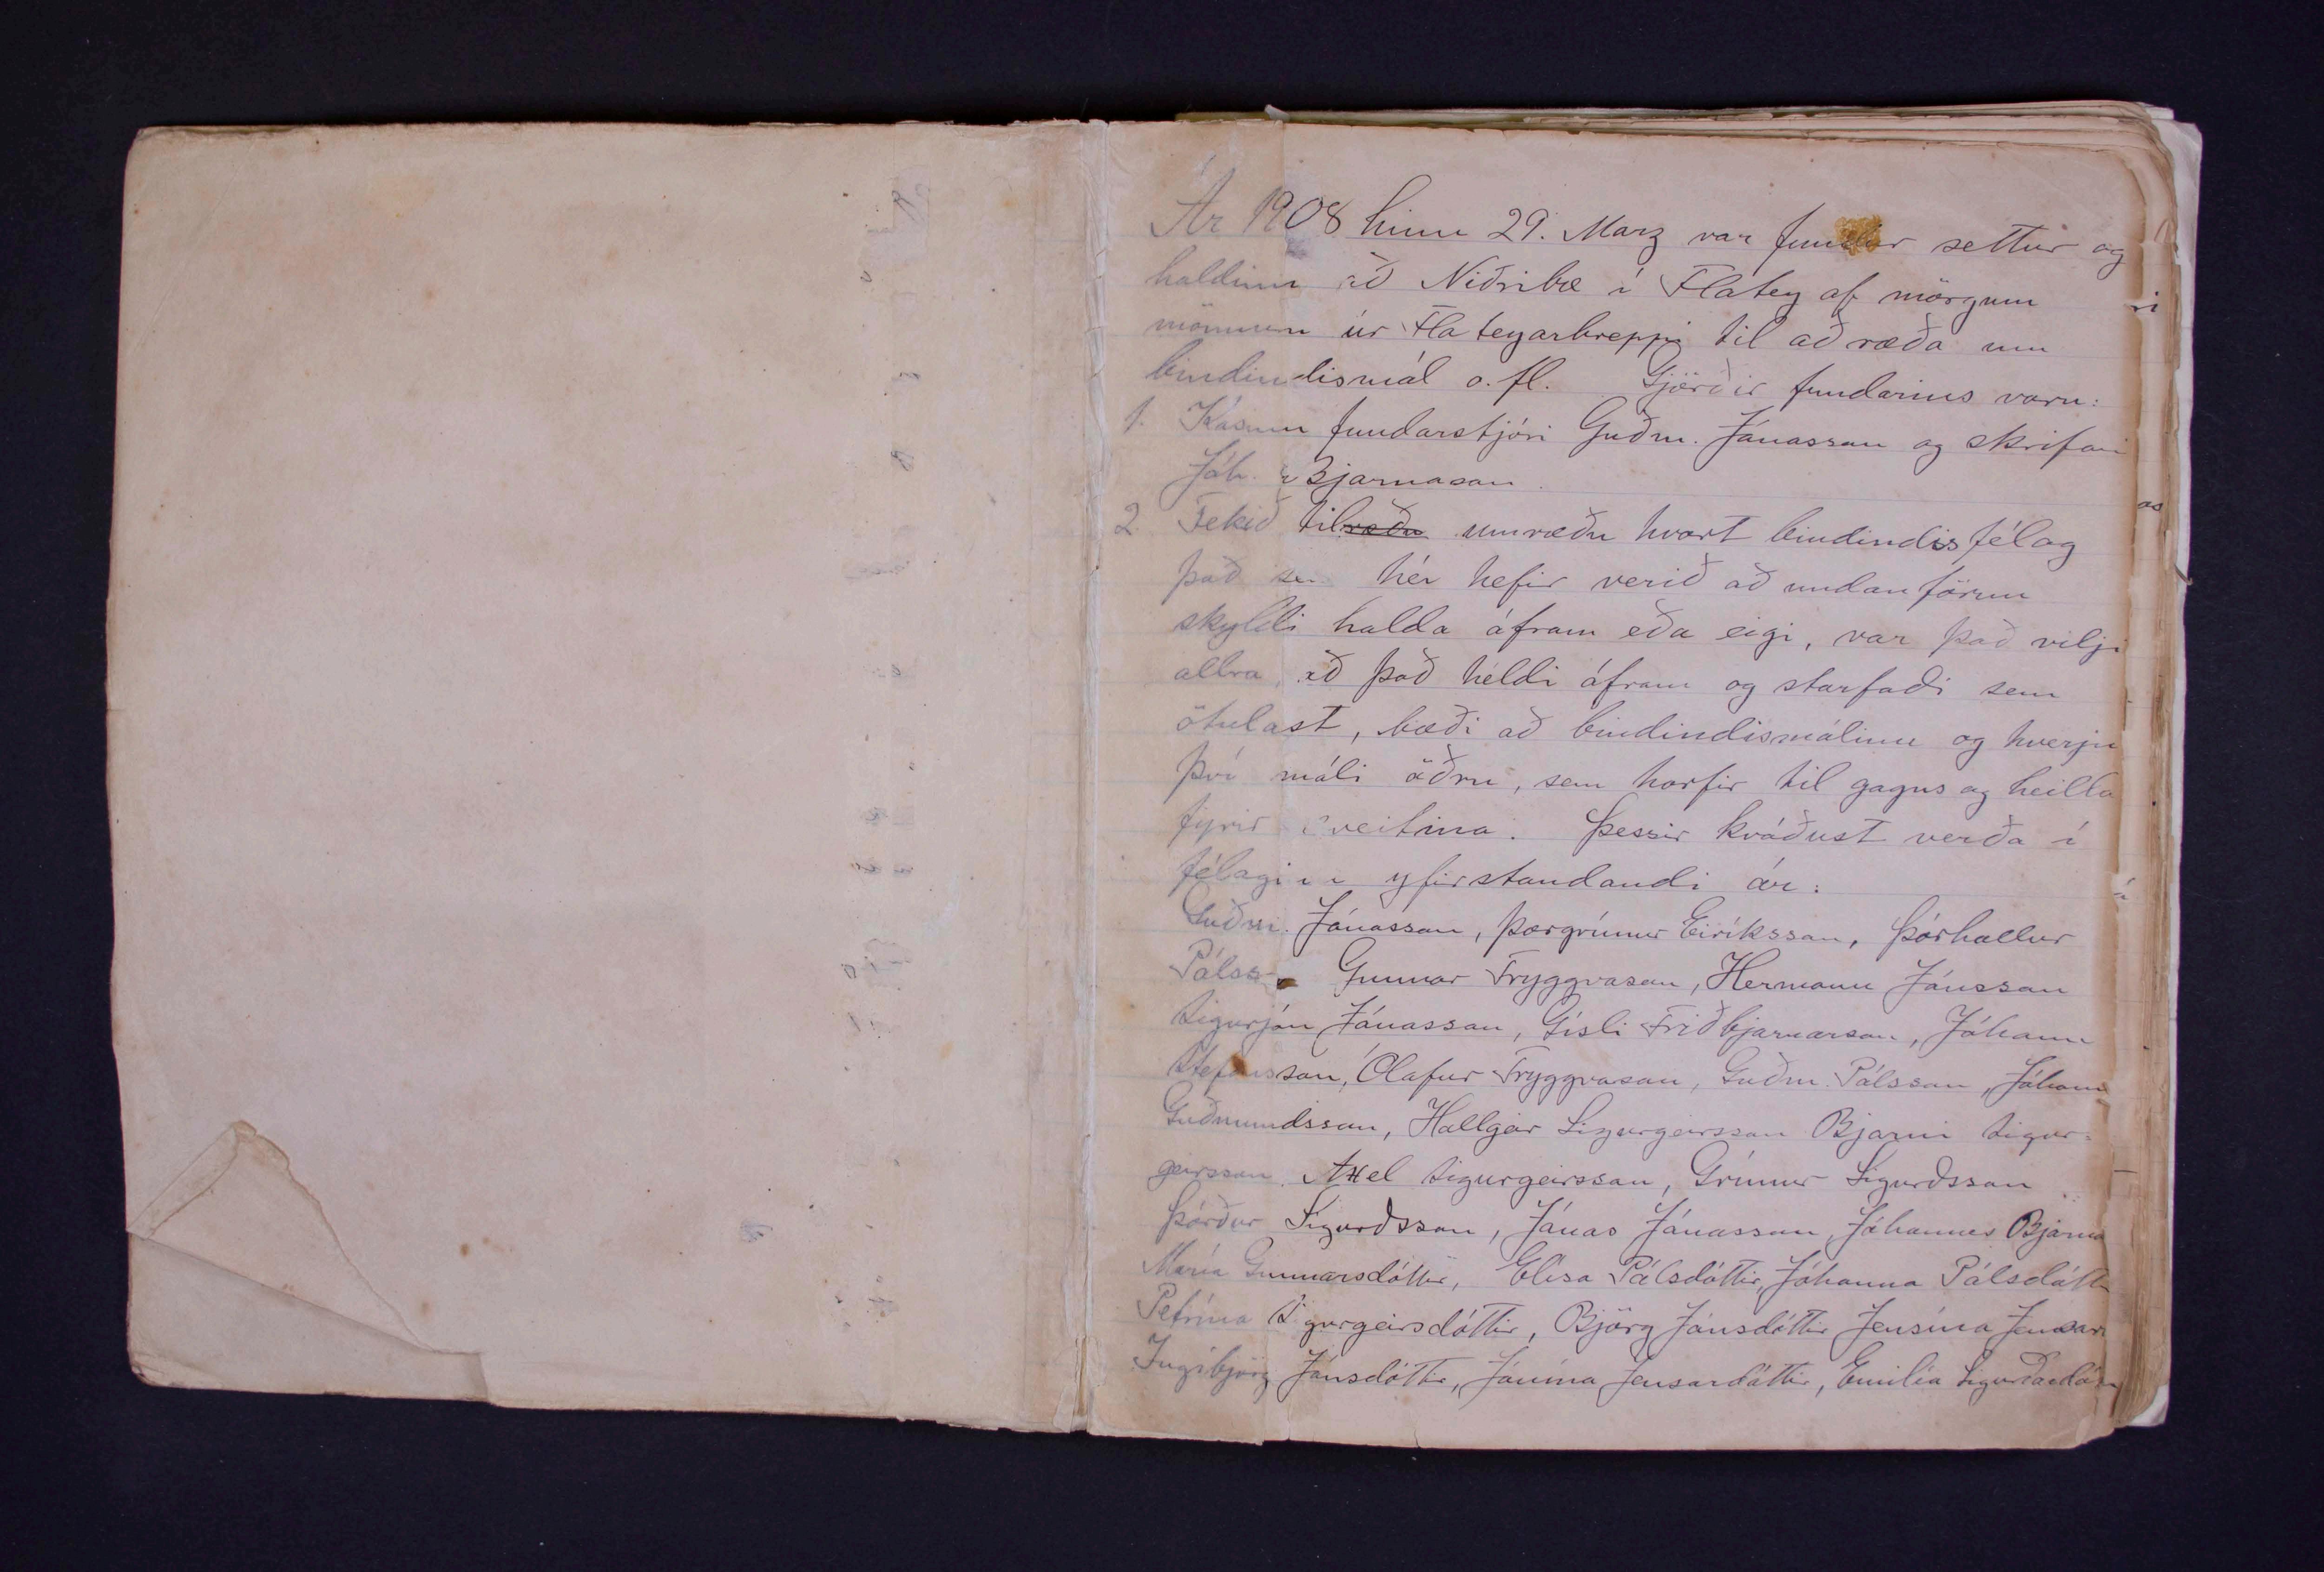 Ár 1908 hinn 29. Marz var fundur settur og
haldinn að Niðribæ í Flatey af mörgum
mönnum úr Flateyarhreppi til að ræða um
bindindismál o.fl. Gjörðir fundarins voru:
1. Kosinn fundarstjóri Guðm. Jónasson og skrifari
Jóh. Bjarnason.
2. Tekið til ræðu umræðu hvort bindindisfélag
það sem hér hefir verið að undanförnu
skyldi halda áfram eða eigi, var það vilji
allra að það héldi áfram og starfaði sem
ötulast, bæði að bindindismálinu og hverju
því máli öðru, sem horfir til gagns og heilla
fyrir sveitina. Þessir kváðust verða í
félaginu yfirstandandi ár:
Guðm. Jónasson, Þorgrímur Eiríksson, Þórhallur
Pálsson Gunnar Tryggvason, Hermann Jónsson
Sigurjón Jónasson, Gísli Friðbjarnarson, Jóhann
Stefánsson, Ólafur Tryggvason, Guðm. Pálsson, Jóhann
Guðmundsson, Hallgeir Sigurgeirsson Bjarni Sigur-
geirsson, Axel Sigurgeirsson, Grímur Sigurðsson
Þórður Sigurðsson, Jónas Jónasson, Jóhannes Bjarna
María Gunnarsdóttir, Elísa Pálsdóttir, Jóhanna Pálsdótt
Petrína Sigurgeirsdóttir, Björg Jónsdóttir Jensína Jensar
Ingibjörg Jónsdóttir, Jónína Jensardóttir, Emilía Sigurðardó